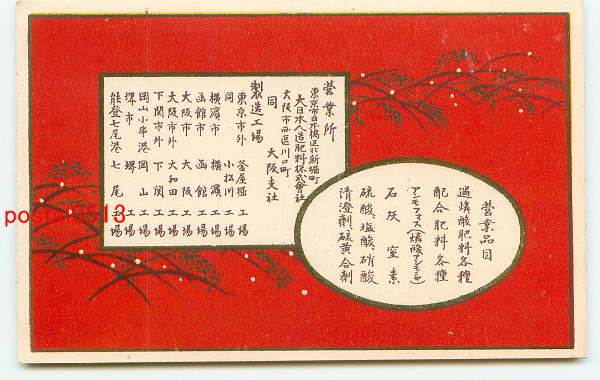 營業所
東京市日本橋区北新堀町
大日本人造肥料株式會社
大阪市西區川口町
同 大阪支社
製造工場
東京市外 釜屋堀 工場
同 小松川 工場
橫濱市 橫濱 工場
函館市 函館 工場
大阪市 大阪 工場
大阪市外 大和田 工場
下関市外 下関 工場
岡山小串港 岡山 工場
堺市 堺 工場
能登七尾港 七尾 工場
營業品目
過燐酸肥料各種
配合肥料各種
アンモフォス(燐酸アンモニヤ)
石灰窒素
硫酸、塩酸、硝酸
清澄劑、硫黄合劑